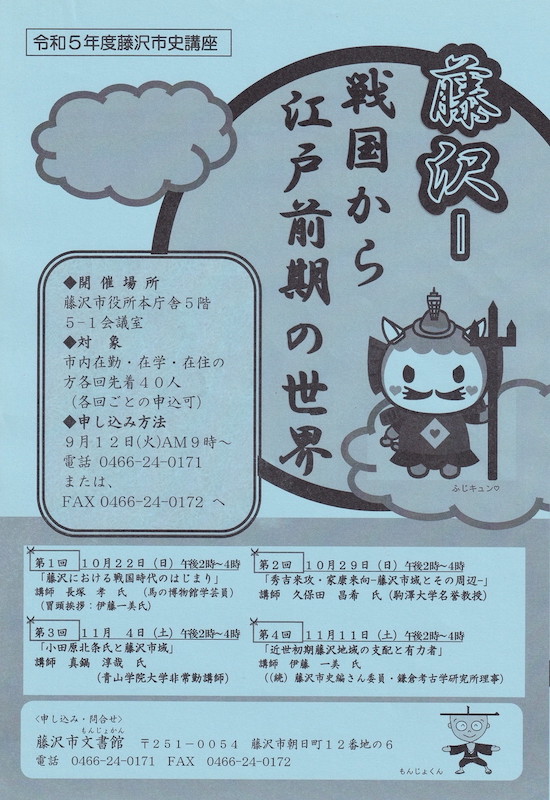 令和5年度藤沢市史講座
藤沢ー
戦国から
江戸前期の世界
◆開催場所
藤沢市役所本庁舎5階
5-1会議室
◆対 象
市内在勤・在学・在住の
方各回先着40人
(各回ごとの申込可)
◆申し込み方法
9月12日(火)AM9時~
電話 0466-24-0171
または、
FAX 0466-24-0172 へ
ふじキュン♡
第1回 10月22日(日)午後2時~4時
「藤沢における戦国時代のはじまり」
講師 長塚 孝 氏 (馬の博物館学芸員)
(冒頭挨拶:伊藤一美氏)
第2回 10月29日(日)午後2時~4時
「秀吉来攻・家康来向-藤沢市域とその周辺-」
講師 久保田 昌希 氏(駒澤大学名誉教授)
第3回 11月 4日(土)午後2時~4時
「小田原北条氏と藤沢市域」
講師 真鍋 淳哉 氏
(青山学院大学非常勤講師)
第4回 11月11日(土)午後2時~4時
「近世初期藤沢地域の支配と有力者」
講師 伊藤 一美 氏
((続)藤沢市史編さん委員・鎌倉考古学研究所理事)
〈申し込み・問合せ〉
もんじょかん
藤沢市文書館 〒251-0054 藤沢市朝日町12番地の6
電話 0466-24-0171 FAX 0466-24-0172
もんじょくん